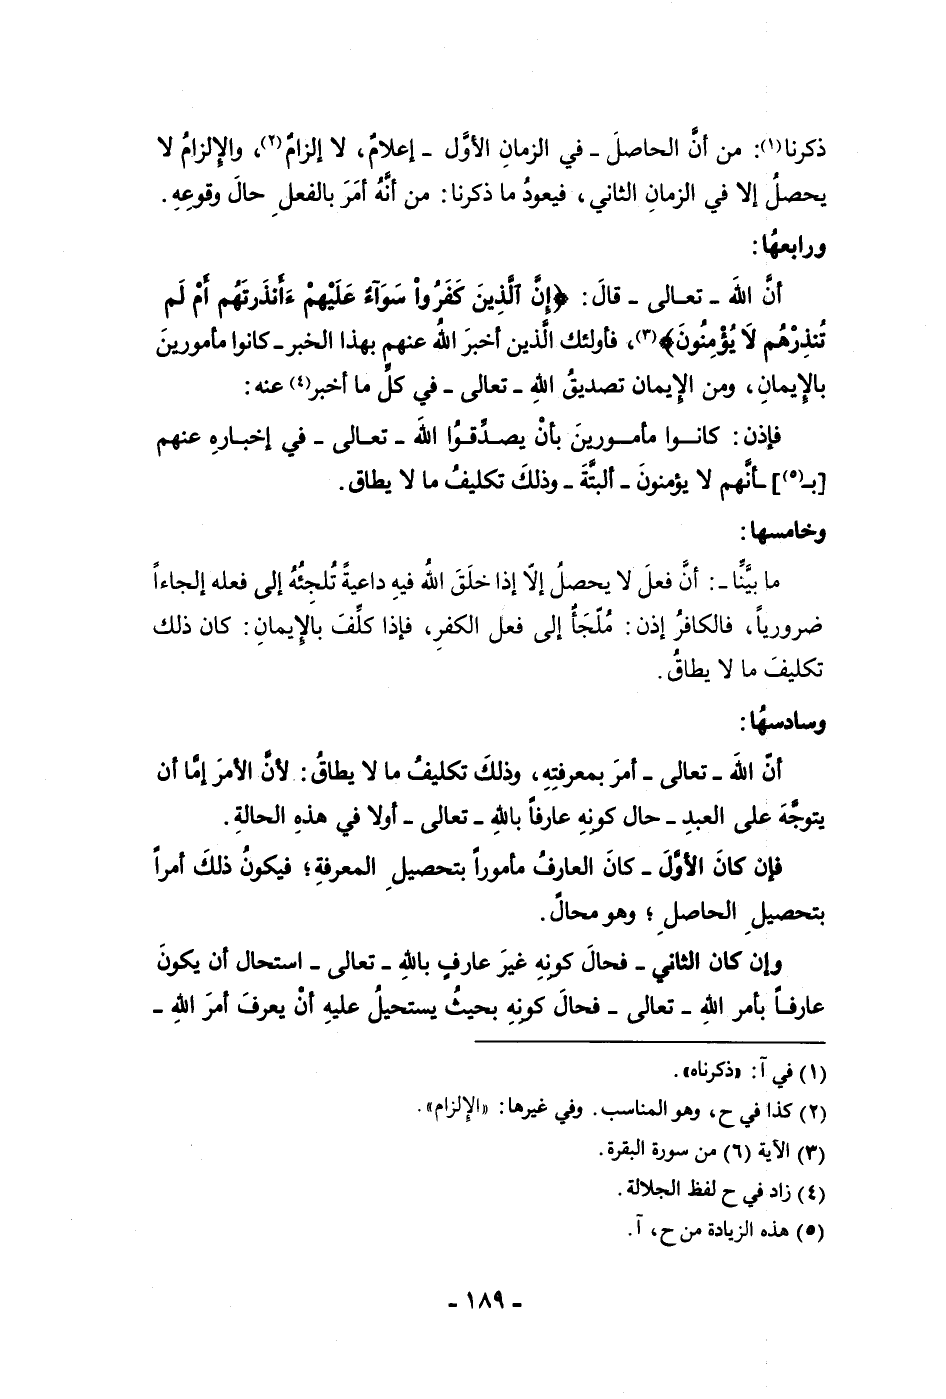 ذكرنا(١): من أنَّ الحاصلَ ـ في الزمانِ الأوَّل ـ إعلامٌ، لا إلزامٌ(٢)، والإلزامُ لا
يحصلُ إلا في الزمانِ الثاني، فيعودُ ما ذكرنا: من أنَّهُ أمَرَ بالفعلِ حالَ وقوعِهِ.
ورابعهُا:
أنَّ اللهَ ـ تعالى ـ قالَ: ﴿إِنَّ ٱلَّذِينَ كَفَرُواْ سَوَآءٌ عَلَيْهِمْ ءَأَنذَرتَهُم أَمْ لَم
تُنذِرْهُم لاَ يُؤْمِنُونَ﴾(٣)، فأولئك الَّذين أخبرَ اللهُ عنهم بهذا الخبر ـ كانوا مأمورينَ
بالإِيمانِ، ومن الإِيمان تصديقُ اللهِ ـ تعالى ـ في كلِّ ما أخبر(٤) عنه:
فإذن: كانوا مأمورينَ بأنْ يصدِّقوُا اللهَ ـ تعالى ـ في إخبارِهِ عنهم
[بـ(٥)] ـأنَّهم لا يؤمنونَ ـ ألبتَّةَ ـ وذلكَ تكليفُ ما لا يطاق.
وخامسها:
ما بيَّنَّا ـ: أنَّ فعلَ لا يحصلُ إلّا إذا خلَقَ اللهُ فيهِ داعيةً تُلجئُهُ إلى فعله إلجاءاً
ضرورياً، فالكافرُ إذن: مُلْجَأُ إلى فعل الكفرِ، فإذا كلِّفَ بالإِيمانِ: كان ذلك
تكليفَ ما لا يطاقُ.
وسادسهُا:
أنّ اللهَ ـ تعالى ـ أمرَ بمعرفتِهِ، وذلكَ تكليفُ ما لا يطاقُ: لأنَّ الأمرَ إمَّا أن
يتوجَّهَ على العبدِ ـ حال كونِهِ عارفاً باللهِ ـ تعالى ـ أولا في هذهِ الحالةِ.
فإن كانَ الأوَّلَ ـ كانَ العارفُ مأموراً بتحصيلِ المعرفةِ؛ فيكونُ ذلكَ أمراً
بتحصيلِ الحاصلِ؛ وهو محالٌ.
وإن كان الثاني ـ فحالَ كونِهِ غيرَ عارفٍ باللهِ ـ تعالى ـ استحال أن يكونَ
عارفاً بأمر اللهِ ـ تعالى ـ فحالَ كونِهِ بحيثُ يستحيلُ عليهِ أنْ يعرفَ أمرَ اللهِ ـ
(١) في آ: «ذكرناه».
(٢) كذا في ح، وهو المناسب. وفي غيرها: «الإِلزام».
(٣) الآية (٦) من سورة البقرة.
(٤) زاد في ح لفظ الجلالة.
(٥) هذه الزيادة من ح، آ.
ـ ١٨٩ ـ